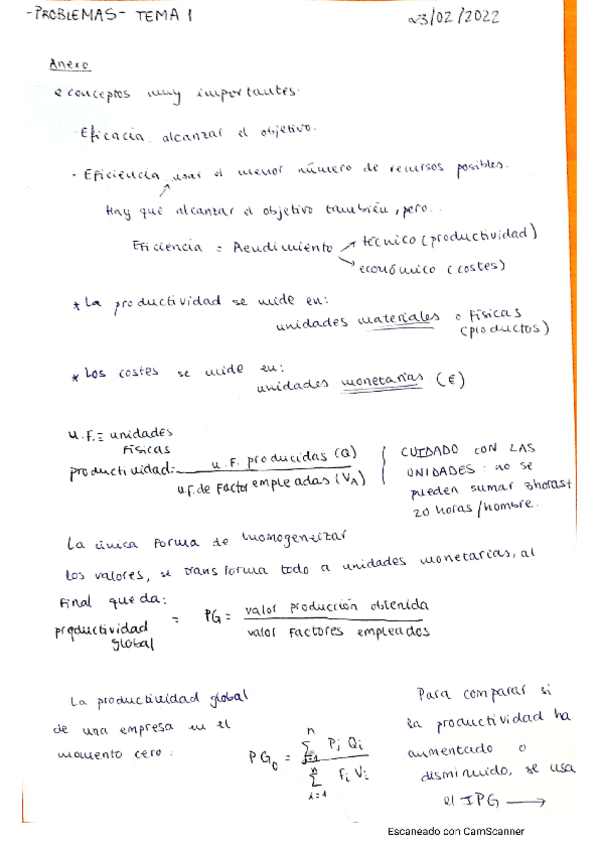 -PROBLEMAS- TEMA 1
23/02/2022
Anexo
2 conceptos muy importantes.
· Eficacia, alcanzar el objetivo.
· Eficiencia, usar el menor número de recursos posibles.
Hay que alcanzar el objetivo también, pero...
Eficiencia = Rendimiento → técnico (productividad)
→ económico (costes)
* La productividad se mide en:
unidades materiales o físicas
(productos)
* Los costes se mide en:
unidades monetarias (€)
u.F. = unidades
físicas
productividad = u.F. producidas (Q) / u.F. de factor empleadas (VA)
CUIDADO CON LAS
UNIDADES: no se
pueden sumar 3horas+
20 horas/hombre.
La única forma de homogeneizar
los valores, se transforma todo a unidades monetarias, al
final queda:
productividad global = PG = valor producción obtenida / valor factores empleados
La productividad global
de una empresa en el
momento cero:
PG₀ = ∑ⁿⱼ₌₁ Pⱼ Qⱼ / ∑ⁿᵢ₌₁ Fᵢ Vᵢ
Para comparar si
la productividad ha
aumentado o
disminuido, se usa
el IPG →
Escaneado con CamScanner